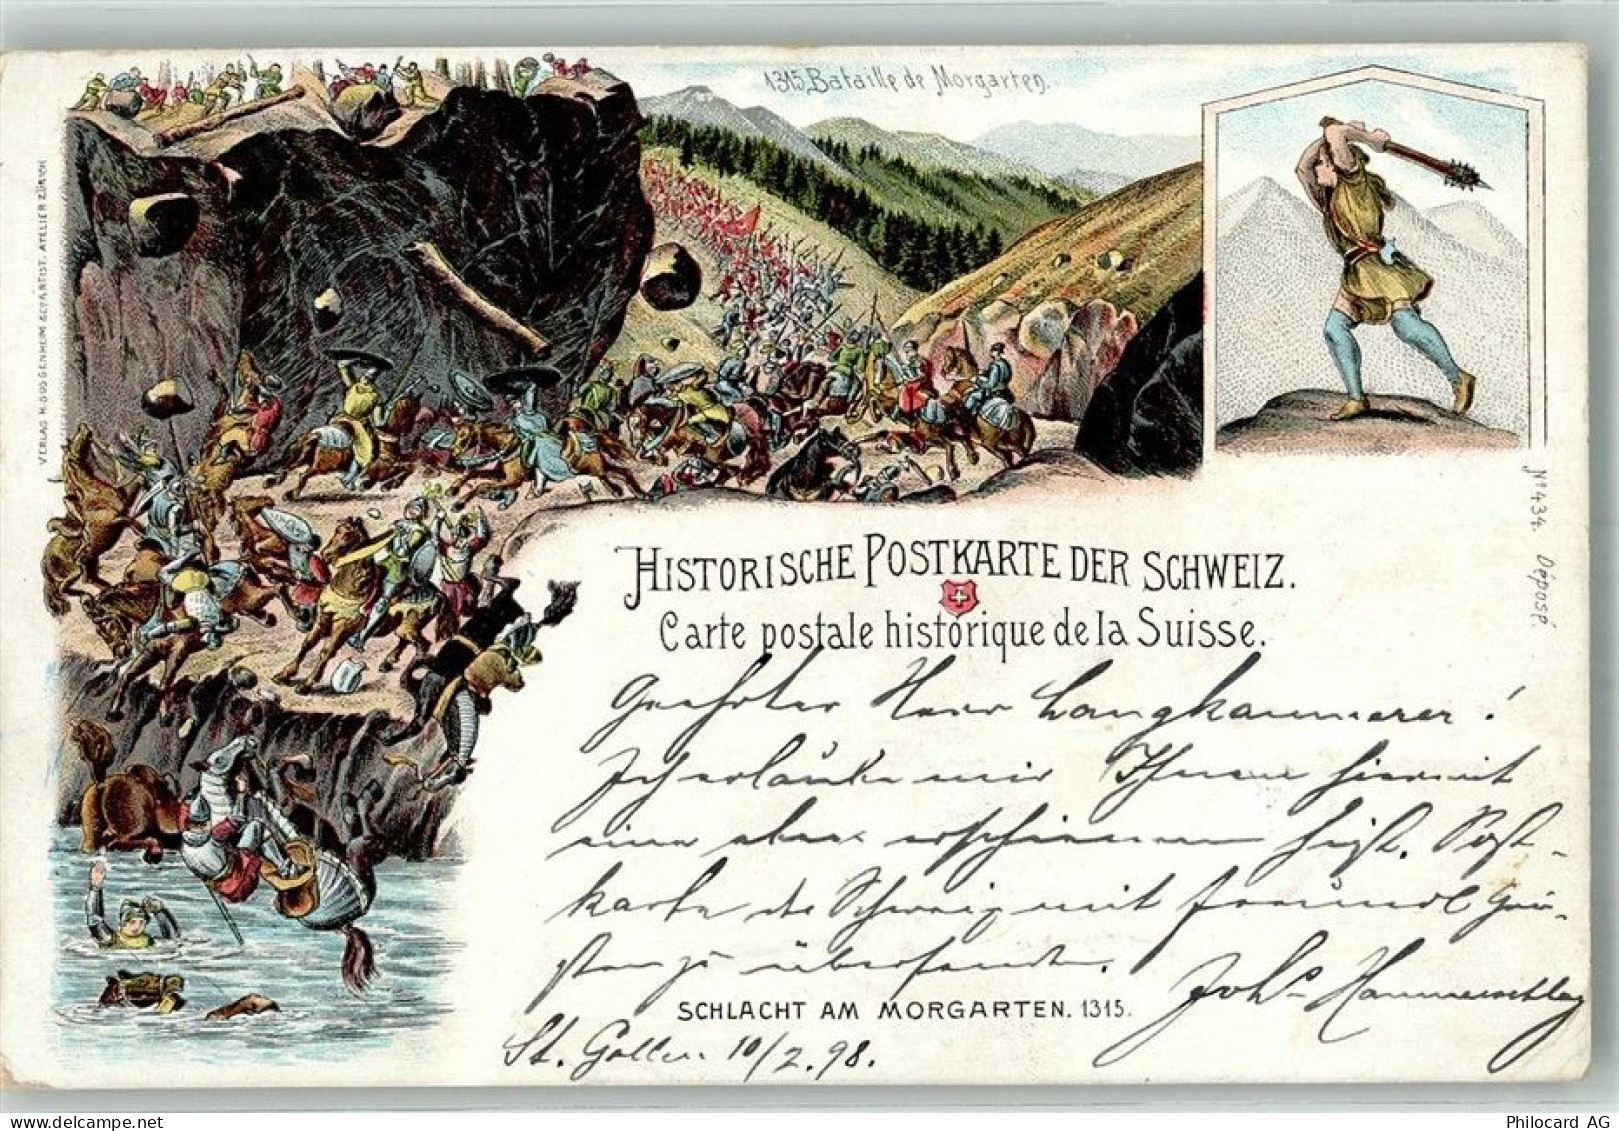 1315. Bataille de Morgarten.
VERLAG H. GUGGENHEIM & Cº ANTIST. ATELIER ZÜRICH
Nº 434. Déposé.
HISTORISCHE POSTKARTE DER SCHWEIZ.
Carte postale historique de la Suisse.
Geehrter Herr Langkammerer!
Ich erlaube mir Ihnen hiermit
eine eben erschienene hist. Post-
karte der Schweiz mit freundl
zu übersenden.
Johs Hammerschlag
SCHLACHT AM MORGARTEN. 1315.
St. Gallen 10/2.98.
delcampe.net
Philocard AG